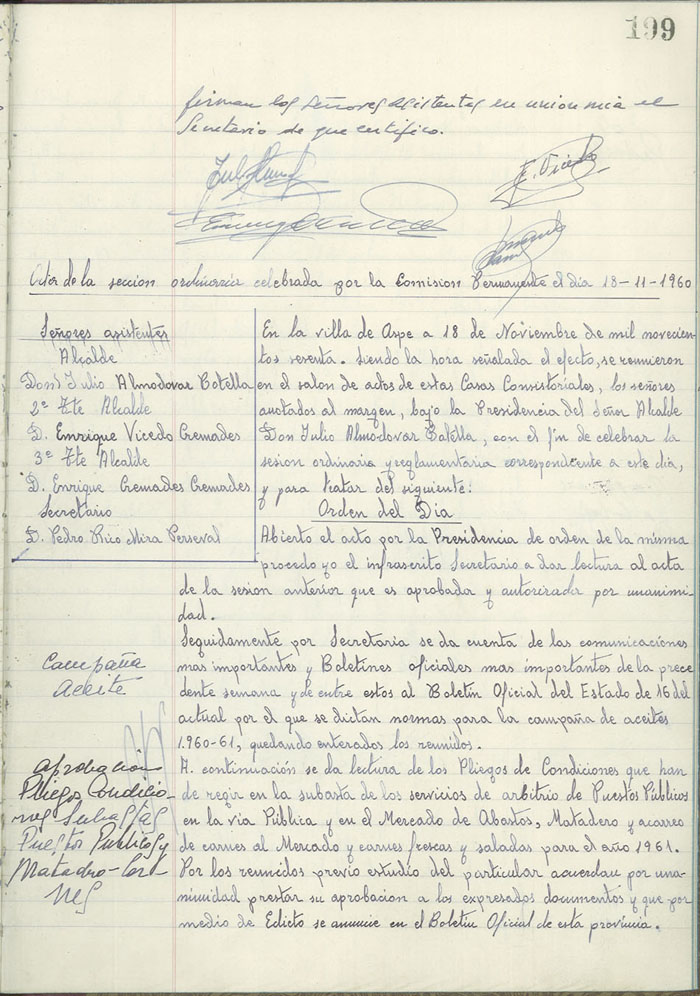 199
firman los Señores asistentes en union mia el
Secretario de que certifico.
E. Vicedo
Acta de la seccion ordinaria celebrada por la Comision Permanente el dia 18-11-1960
Señores asistentes
Alcalde
Don Julio Almodovar Botella
2º Tte Alcalde
D. Enrique Vicedo Cremades
3º Tte Alcalde
D. Enrique Cremades Cremades
Secretario
D. Pedro Rico Mira Perseval
En la villa de Aspe a 18 de Noviembre de mil novecien-
tos sesenta. Siendo la hora señalada el efecto, se reunieron
en el salon de actos de estas Casas Consistoriales, los señores
anotados al margen, bajo la Presidencia del Señor Alcalde
Don Julio Almodovar Botella, con el fin de celebrar la
sesion ordinaria y reglamentaria correspondiente a este dia,
y para tratar del siguiente:
Orden del Dia
Abierto el acto por la Presidencia de orden de la misma
procedo yo el infrascrito Secretario a dar lectura al acta
de la sesion anterior que es aprobada y autorizada por unanimi-
dad.
Campaña
Aceite
Seguidamente por Secretaria se da cuenta de las comunicaciones
mas importantes y Boletines oficiales mas importantes de la prece
dente semana y de entre estos al Boletin Oficial del Estado de 16 del
actual por el que se dictan normas para la campaña de aceites
1.960-61, quedando enterados los reunidos.
Aprobacion
Pliego Condicio-
nes Subastas
Puestos Publicos y
Matadero-Car-
nes
A continuación se da lectura de los Pliegos de Condiciones que han
de regir en la subasta de los servicios de arbitrio de Puestos Públicos
en la via Pública y en el Mercado de Abastos, Matadero y acarreo
de carnes al Mercado y carnes frescas y saladas para el año 1961.
Por los reunidos previo estudio del particular acuerdan por una-
nimidad prestar su aprobacion a los expresados documentos y que por
medio de Edicto se anuncie en el Boletin Oficial de esta provincia.